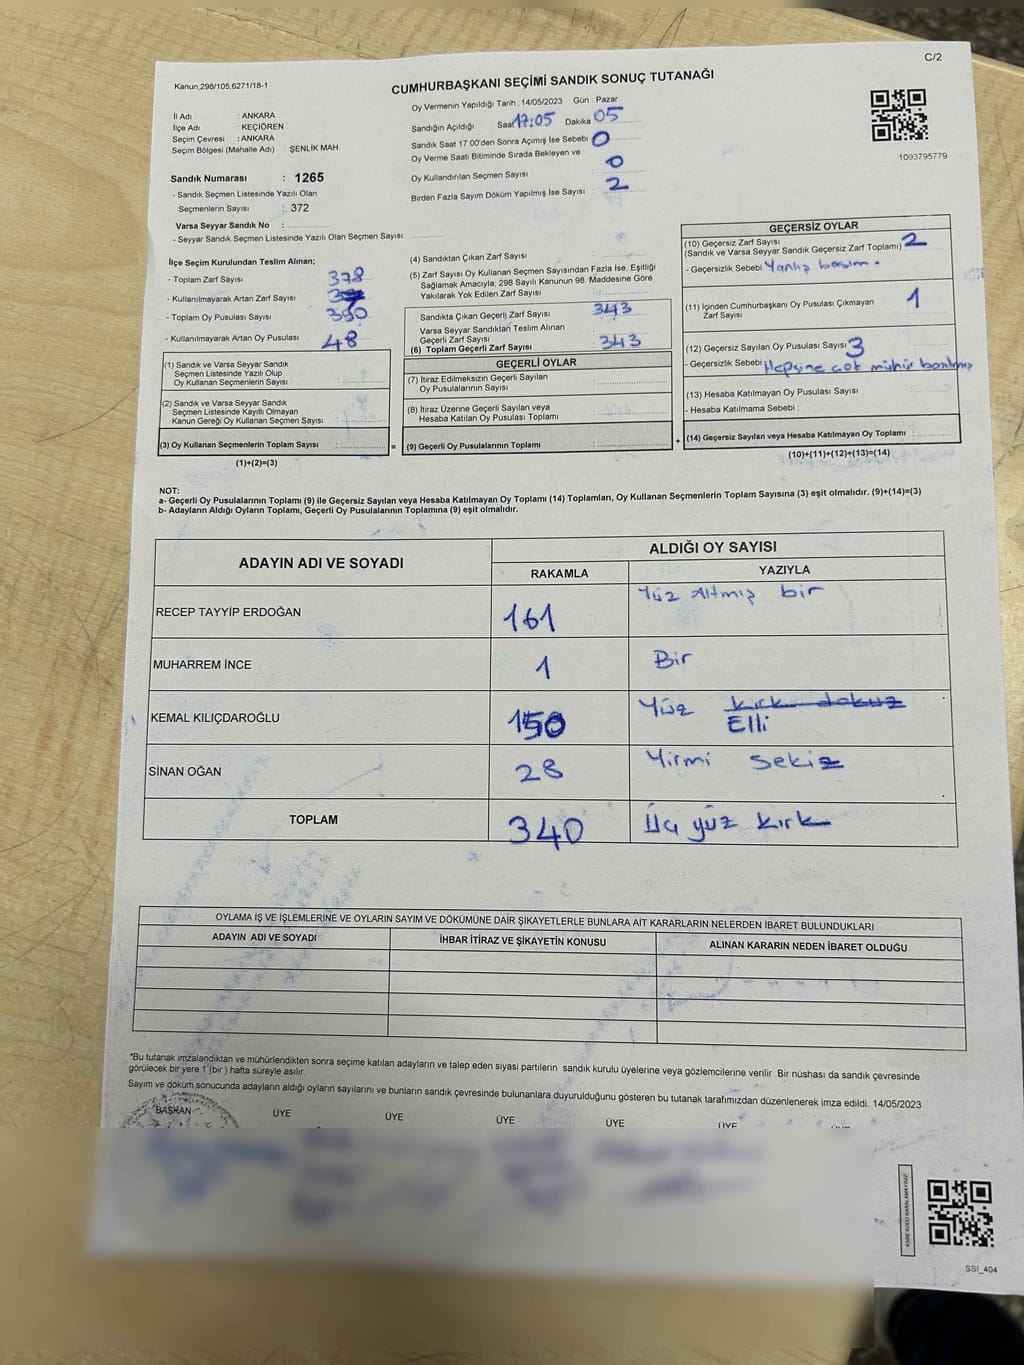 C/2
Kanun;298/105,6271/18-1
CUMHURBAŞKANI SEÇİMİ SANDIK SONUÇ TUTANAĞI
Oy Vermenin Yapıldığı Tarih : 14/05/2023 Gün : Pazar
İl Adı : ANKARA
İlçe Adı : KEÇİÖREN
Seçim Çevresi : ANKARA
Seçim Bölgesi (Mahalle Adı) : ŞENLİK MAH.
Sandığın Açıldığı Saat 17:05 Dakika 05
Sandık Saat 17:00'den Sonra Açımış İse Sebebi 0
Oy Verme Saati Bitiminde Sırada Bekleyen ve
Oy Kullandırılan Seçmen Sayısı : 0
Birden Fazla Sayım Döküm Yapılmış İse Sayısı : 2
1093795779
Sandık Numarası : 1265
- Sandık Seçmen Listesinde Yazılı Olan
Seçmenlerin Sayısı : 372
Varsa Seyyar Sandık No :
- Seyyar Sandık Seçmen Listesinde Yazılı Olan Seçmen Sayısı:
İlçe Seçim Kurulundan Teslim Alınan;
- Toplam Zarf Sayısı : 378
- Kullanılmayarak Artan Zarf Sayısı :
- Toplam Oy Pusulası Sayısı :
- Kullanılmayarak Artan Oy Pusulası : 48
(1) Sandık ve Varsa Seyyar Sandık
Seçmen Listesinde Yazılı Olup
Oy Kullanan Seçmenlerin Sayısı :
(2) Sandık ve Varsa Seyyar Sandık
Seçmen Listesinde Kayıtlı Olmayan
Kanun Gereği Oy Kullanan Seçmen Sayısı :
(3) Oy Kullanan Seçmenlerin Toplam Sayısı :
(1)+(2)=(3)
=
(4) Sandıktan Çıkan Zarf Sayısı :
(5) Zarf Sayısı Oy Kullanan Seçmen Sayısından Fazla İse, Eşitliği
Sağlamak Amacıyla; 298 Sayılı Kanunun 98. Maddesine Göre
Yakılarak Yok Edilen Zarf Sayısı :
Sandıkta Çıkan Geçerli Zarf Sayısı : 343
Varsa Seyyar Sandıktan Teslim Alınan
Geçerli Zarf Sayısı :
(6) Toplam Geçerli Zarf Sayısı : 343
GEÇERLİ OYLAR
(7) İtiraz Edilmeksizin Geçerli Sayılan
Oy Pusulalarının Sayısı :
(8) İtiraz Üzerine Geçerli Sayılan veya
Hesaba Katılan Oy Pusulası Toplamı :
(9) Geçerli Oy Pusulalarının Toplamı :
+
GEÇERSİZ OYLAR
(10) Geçersiz Zarf Sayısı
(Sandık ve Varsa Seyyar Sandık Geçersiz Zarf Toplamı) 2
- Geçersizlik Sebebi : Yanlış basım.
(11) İçinden Cumhurbaşkanı Oy Pusulası Çıkmayan
Zarf Sayısı : 1
(12) Geçersiz Sayılan Oy Pusulası Sayısı : 3
- Geçersizlik Sebebi : Hepsine çok mühür basılmış
(13) Hesaba Katılmayan Oy Pusulası Sayısı :
- Hesaba Katılmama Sebebi :
(14) Geçersiz Sayılan veya Hesaba Katılmayan Oy Toplamı :
(10)+(11)+(12)+(13)=(14)
NOT:
a- Geçerli Oy Pusulalarının Toplamı (9) ile Geçersiz Sayılan veya Hesaba Katılmayan Oy Toplamı (14) Toplamları, Oy Kullanan Seçmenlerin Toplam Sayısına (3) eşit olmalıdır. (9)+(14)=(3)
b- Adayların Aldığı Oyların Toplamı, Geçerli Oy Pusulalarının Toplamına (9) eşit olmalıdır.
ADAYIN ADI VE SOYADI
ALDIĞI OY SAYISI
RAKAMLA YAZIYLA
RECEP TAYYİP ERDOĞAN 161 Yüz Altmış bir
MUHARREM İNCE 1 Bir
KEMAL KILIÇDAROĞLU 150 Yüz kırk dokuz
Elli
SİNAN OĞAN 28 Yirmi sekiz
TOPLAM 340 Üç yüz kırk
OYLAMA İŞ VE İŞLEMLERİNE VE OYLARIN SAYIM VE DÖKÜMÜNE DAİR ŞİKAYETLERLE BUNLARA AİT KARARLARIN NELERDEN İBARET BULUNDUKLARI
ADAYIN ADI VE SOYADI İHBAR İTİRAZ VE ŞİKAYETİN KONUSU ALINAN KARARIN NEDEN İBARET OLDUĞU
*Bu tutanak imzalandıktan ve mühürlendikten sonra seçime katılan adayların ve talep eden siyasi partilerin sandık kurulu üyelerine veya gözlemcilerine verilir .Bir nüshası da sandık çevresinde
görülecek bir yere 1 (bir) hafta süreyle asılır.
Sayım ve döküm sonucunda adayların aldığı oyların sayılarını ve bunların sandık çevresinde bulunanlara duyurulduğunu gösteren bu tutanak tarafımızdan düzenlenerek imza edildi. 14/05/2023
BAŞKAN ÜYE ÜYE ÜYE ÜYE ÜYE
KARE KODU KARALAMAYINIZ!
SSI_404